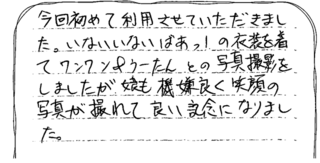 今回初めて利用させていただきまし
た。いないいないばあっ！の衣装を着
てワンワン&うーたんとの写真撮影を
しましたが娘も機嫌良く笑顔の
写真が撮れて良い記念になりまし
た。